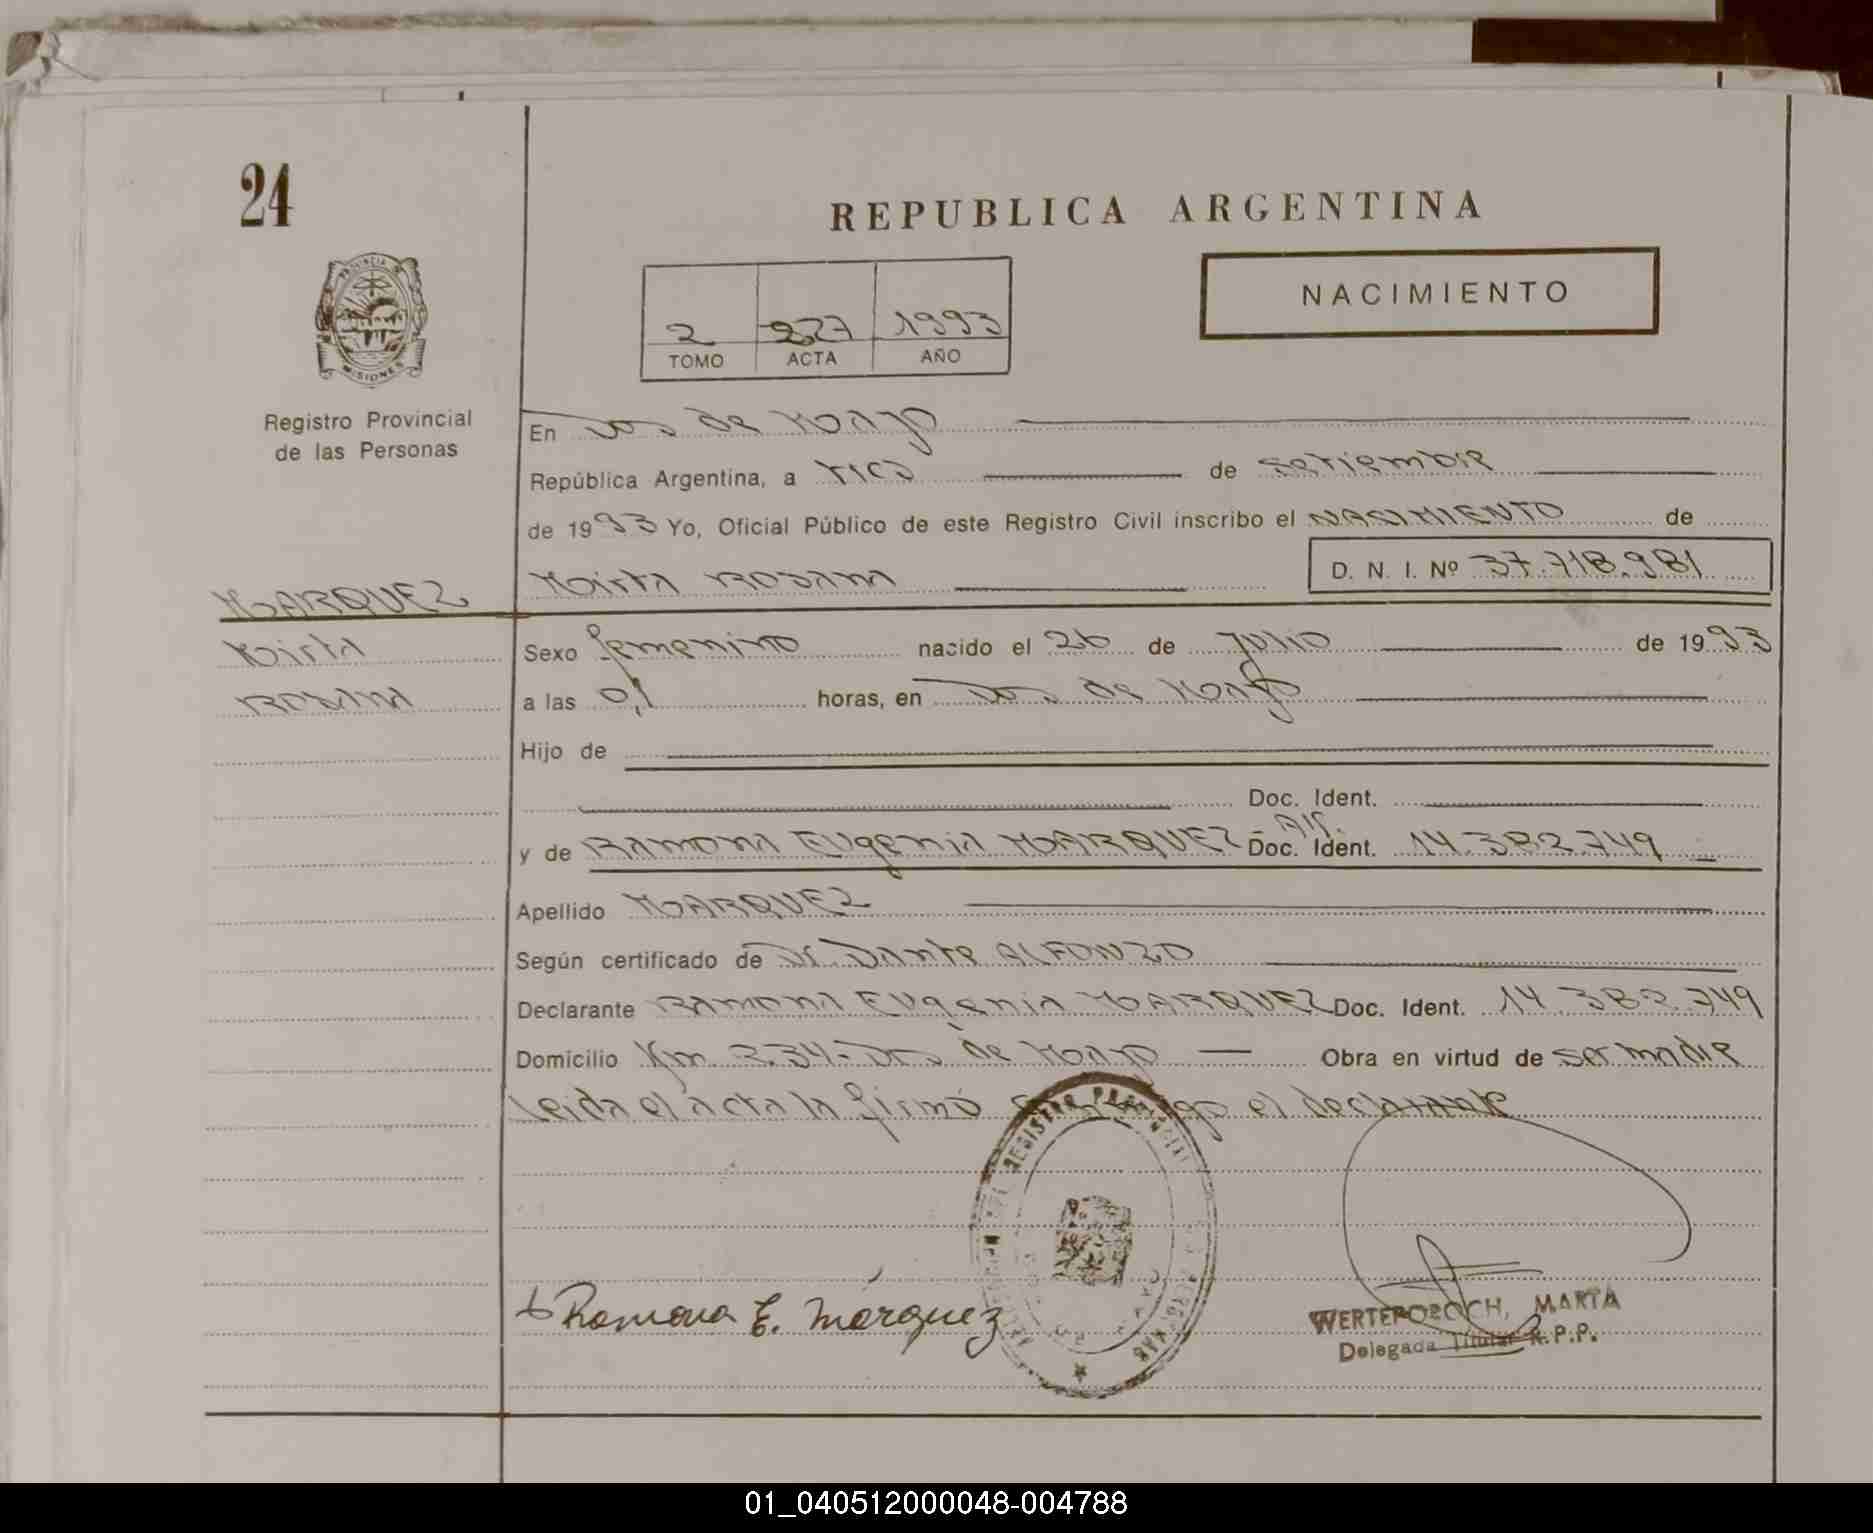 24
REPUBLICA ARGENTINA
NACIMIENTO
PROVINCIA DE
MISIONES
2 227 1993
TOMO ACTA AÑO
Registro Provincial
de las Personas
En Dos de Mayo
República Argentina, a tres de setiembre
de 1993 Yo, Oficial Público de este Registro Civil inscribo el NACIMIENTO de
Mirta ROSANA D. N. I. Nº 37.718.981
MARQUEZ
Mirta
ROSANA
Sexo femenino nacido el 26 de Julio de 1993
a las 0,1 horas, en Dos de Mayo
Hijo de
Doc. Ident.
y de RAMONA EUgeniA MARQUEZ - Arg. Doc. Ident. 14.382.749
Apellido MARQUEZ
Según certificado de Dr. Dante ALFONZO
Declarante RAMONA EUgeniA MARQUEZ Doc. Ident. 14.382.749
Domicilio Km 234 - Dos de Mayo Obra en virtud de ser madre
Leida el acta la firmó el declarante
REGISTRO PROVINCIAL
Ramona E. Márquez
WERTEPOROCH, MARTA
Delegada Titular R.P.P.
01_040512000048-004788